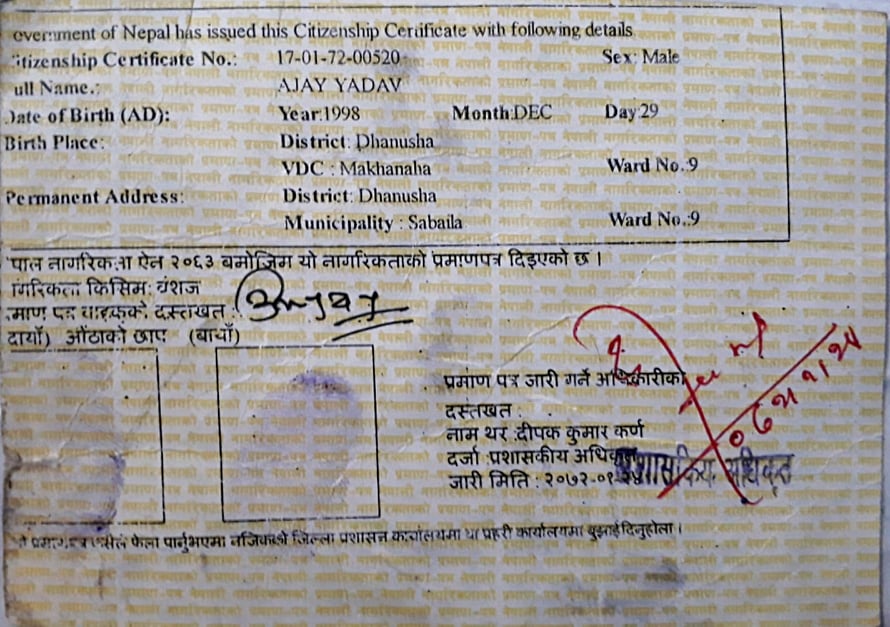 overnment of Nepal has issued this Citizenship Certificate with following details
itizenship Certificate No.: 17-01-72-00520 Sex: Male
ull Name.: AJAY YADAV
Date of Birth (AD): Year:1998 Month:DEC Day:29
Birth Place: District: Dhanusha
VDC : Makhanaha Ward No.:9
Permanent Address: District: Dhanusha
Municipality : Sabaila Ward No.:9
पाल नागरिकता ऐन २०६३ बमोजिम यो नागरिकताको प्रमाणपत्र दिइएको छ ।
गरिकता किसिम: वंशज
माण पत्र वाहकको दस्तखत :
दायाँ) औंठाको छाप (बायाँ)
प्रमाण पत्र जारी गर्ने अधिकारीको
दस्तखत :
नाम थर :दीपक कुमार कर्ण
दर्जा :प्रशासकीय अधिकृत
प्रशासकिय अधिकृत
जारी मिति : २०७२-०१
यो प्रमाणपत्र कसैले फेला पार्नुभएमा नजिकको जिल्ला प्रशासन कार्यालयमा या प्रहरी कार्यालयमा बुझाईदिनुहोला ।